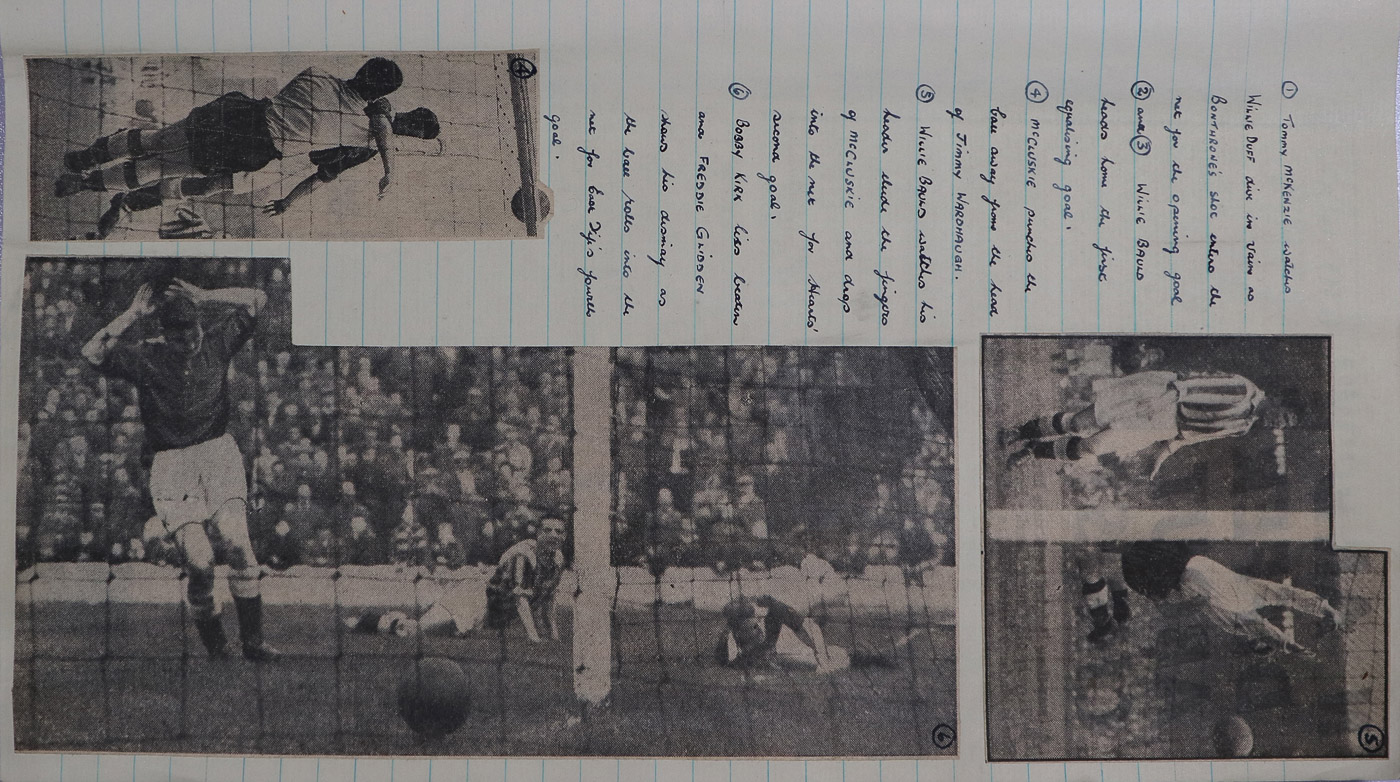 ① TOMMY MCKENZIE watches
WILLIE DUFF dive in vain as
BONTHRONE'S shot enters the
net for the opening goal
② and ③ WILLIE BAULD
heads home the first
equalising goal.
④ MCCLUSKIE punches the
ball away from the head
of JIMMY WARDHAUGH.
⑤ WILLIE BAULD watches his
header elude the fingers
of MCCLUSKIE and drops
into the net for Hearts'
second goal.
⑥ BOBBY KIRK lies beaten
and FREDDIE GLIDDEN
shows his dismay as
the ball rolls into the
net for East Fife's fourth
goal.
④
⑤
⑥